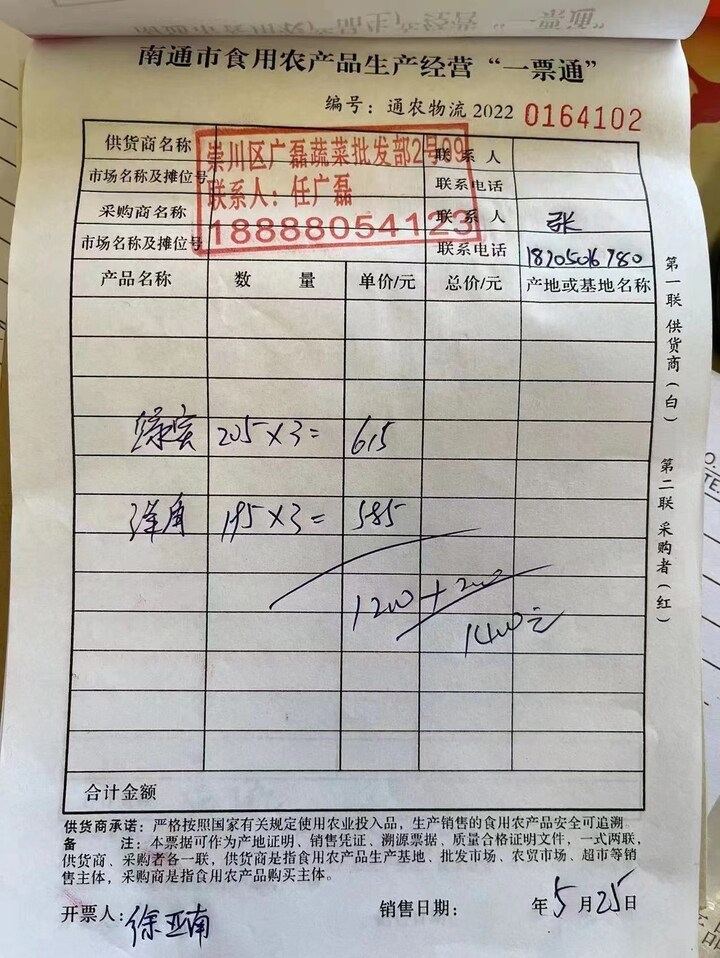 南通市食用农产品生产经营“一票通”
编号：通农物流2022 0164102
供货商名称
联系人
市场名称及摊位号
联系电话
崇川区广磊蔬菜批发部2号09
联系人：任广磊
18888054123
采购商名称
联系人 张
市场名称及摊位号
联系电话
产品名称 数量 单价/元 总价/元 产地或基地名称
205×3= 615
洋角 195×3= 585
1200+200
1400元
合计金额
供货商承诺：严格按照国家有关规定使用农业投入品，生产销售的食用农产品安全可追溯
备注：本票据可作为产地证明、销售凭证、溯源票据、质量合格证明文件，一式两联，
供货商、采购者各一联，供货商是指食用农产品生产基地、批发市场、农贸市场、超市等销
售主体，采购商是指食用农产品购买主体。
开票人：徐亚南 销售日期： 年5月25日
第一联 供货商（白）
第二联 采购者（红）